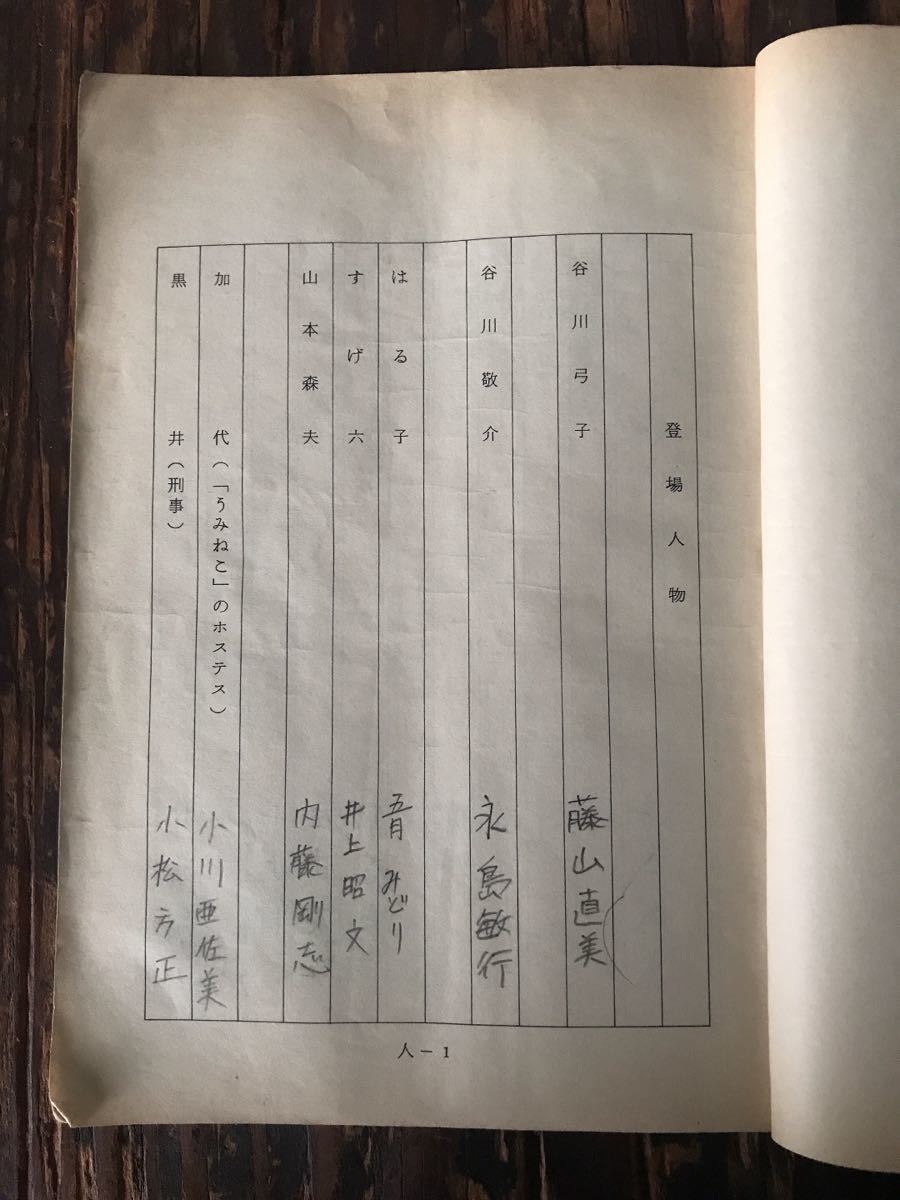 登場人物
谷川弓子 藤山直美
谷川敬介 永島敏行
はる子 五月みどり
すげ六 井上昭文
山本森夫 内藤剛志
加代(「うみねこ」のホステス) 小川亜佐美
黒井(刑事) 小松方正
人－1